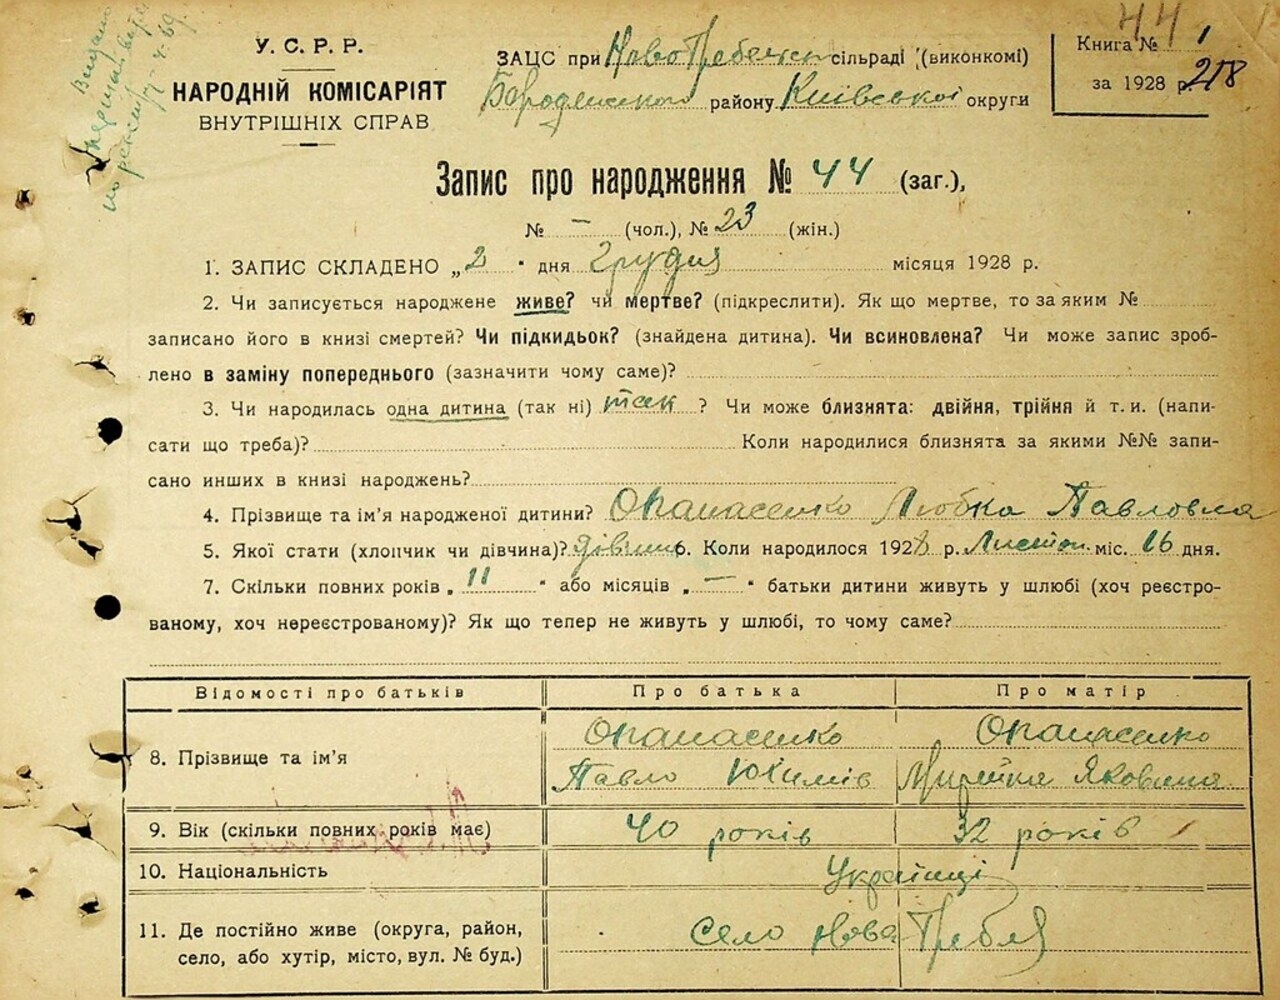 44
У. С. Р. Р.
НАРОДНІЙ КОМІСАРІЯТ
ВНУТРІШНІХ СПРАВ
ЗАЦС при Ново Гребельск сільраді (виконкомі)
Бородянського району Київської округи
Книга № 1
за 1928 р. 218
Видано
Запис про народження № 44 (заг.),
№ – (чол.), № 23 (жін.)
1. ЗАПИС СКЛАДЕНО „2" дня Грудня місяця 1928 р.
2. Чи записується народжене живе? чи мертве? (підкреслити). Як що мертве, то за яким №
записано його в книзі смертей? Чи підкидьок? (знайдена дитина). Чи всиновлена? Чи може запис зроб-
лено в заміну попереднього (зазначити чому саме)?
3. Чи народилась одна дитина (так ні) так ? Чи може близнята: двійня, трійня й т. и. (напи-
сати що треба)? Коли народилися близнята за якими №№ запи-
сано инших в книзі народжень?
4. Прізвище та ім'я народженої дитини? Опанасенко Любка Павловна
5. Якої стати (хлопчик чи дівчина)? дівчин 6. Коли народилося 1928 р. Листоп. міс. 16 дня.
7. Скільки повних років „11" або місяців „–" батьки дитини живуть у шлюбі (хоч реєстро-
ваному, хоч нереєстрованому)? Як що тепер не живуть у шлюбі, то чому саме?
Відомості про батьків Про батька Про матір
8. Прізвище та ім'я Опанасенко Павло Юхимів Опанасенко Яковина
9. Вік (скільки повних років має) 40 років 32 років
10. Національність Українці
11. Де постійно живе (округа, район, село, або хутір, місто, вул. № буд.) Село Нова Гребля